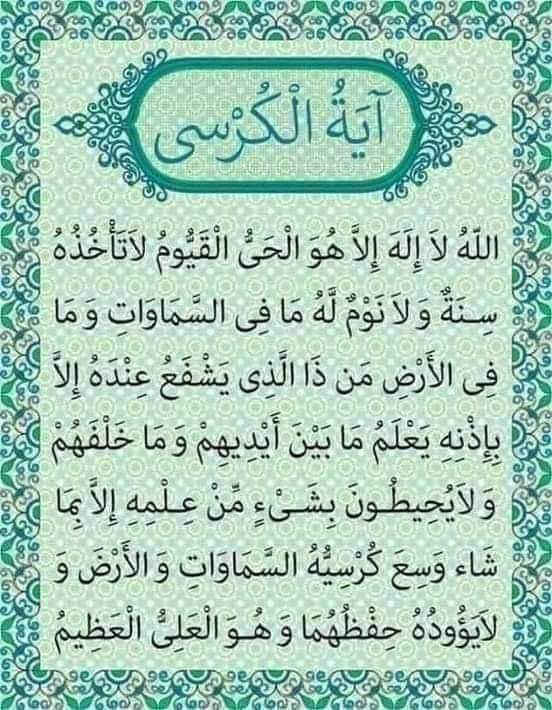 آيَةُ الْكُرْسى
اللّهُ لاَ إِلَهَ إِلاَّ هُوَ الْحَىُّ الْقَيُّومُ لاَتَأْخُذُهُ
سِنَةٌ وَ لاَ نَوْمٌ لَّهُ مَا فِى السَّمَاوَاتِ وَ مَا
فِى الأَرْضِ مَن ذَا الَّذِى يَشْفَعُ عِنْدَهُ إِلاَّ
بِإِذْنِهِ يَعْلَمُ مَا بَيْنَ أَيْدِيهِمْ وَ مَا خَلْفَهُمْ
وَ لاَيُحِيطُونَ بِشَىْءٍ مِّنْ عِلْمِهِ إِلاَّ بِمَا
شَاء وَسِعَ كُرْسِيُّهُ السَّمَاوَاتِ وَ الأَرْضَ وَ
لاَيَؤُودُهُ حِفْظُهُمَا وَ هُوَ الْعَلِىُّ الْعَظِيمُ